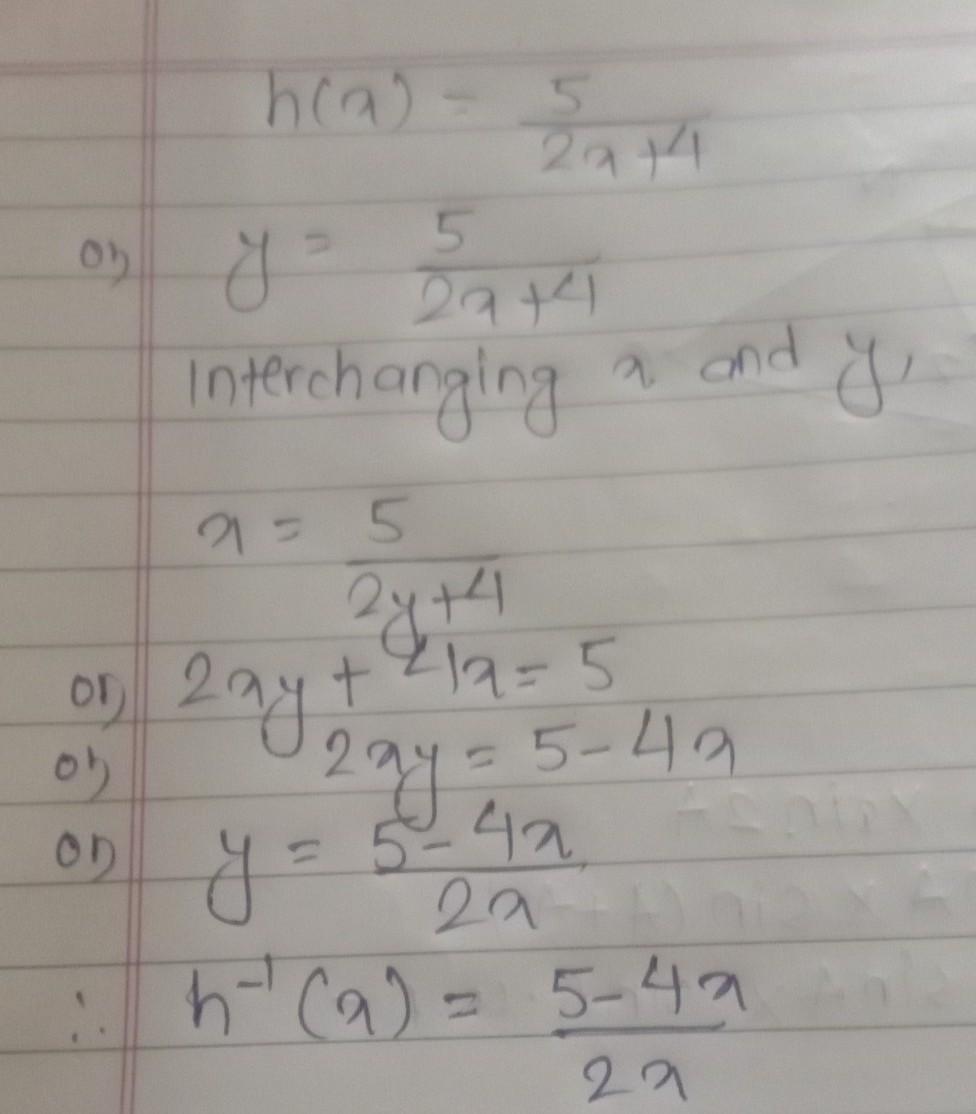 h(x) = 5/(2x+4)
or, y = 5/(2x+4)
Interchanging x and y,
x = 5/(2y+4)
or, 2xy + 4x = 5
or, 2xy = 5 - 4x
or, y = (5 - 4x)/(2x)
∴ h⁻¹(x) = (5 - 4x)/(2x)